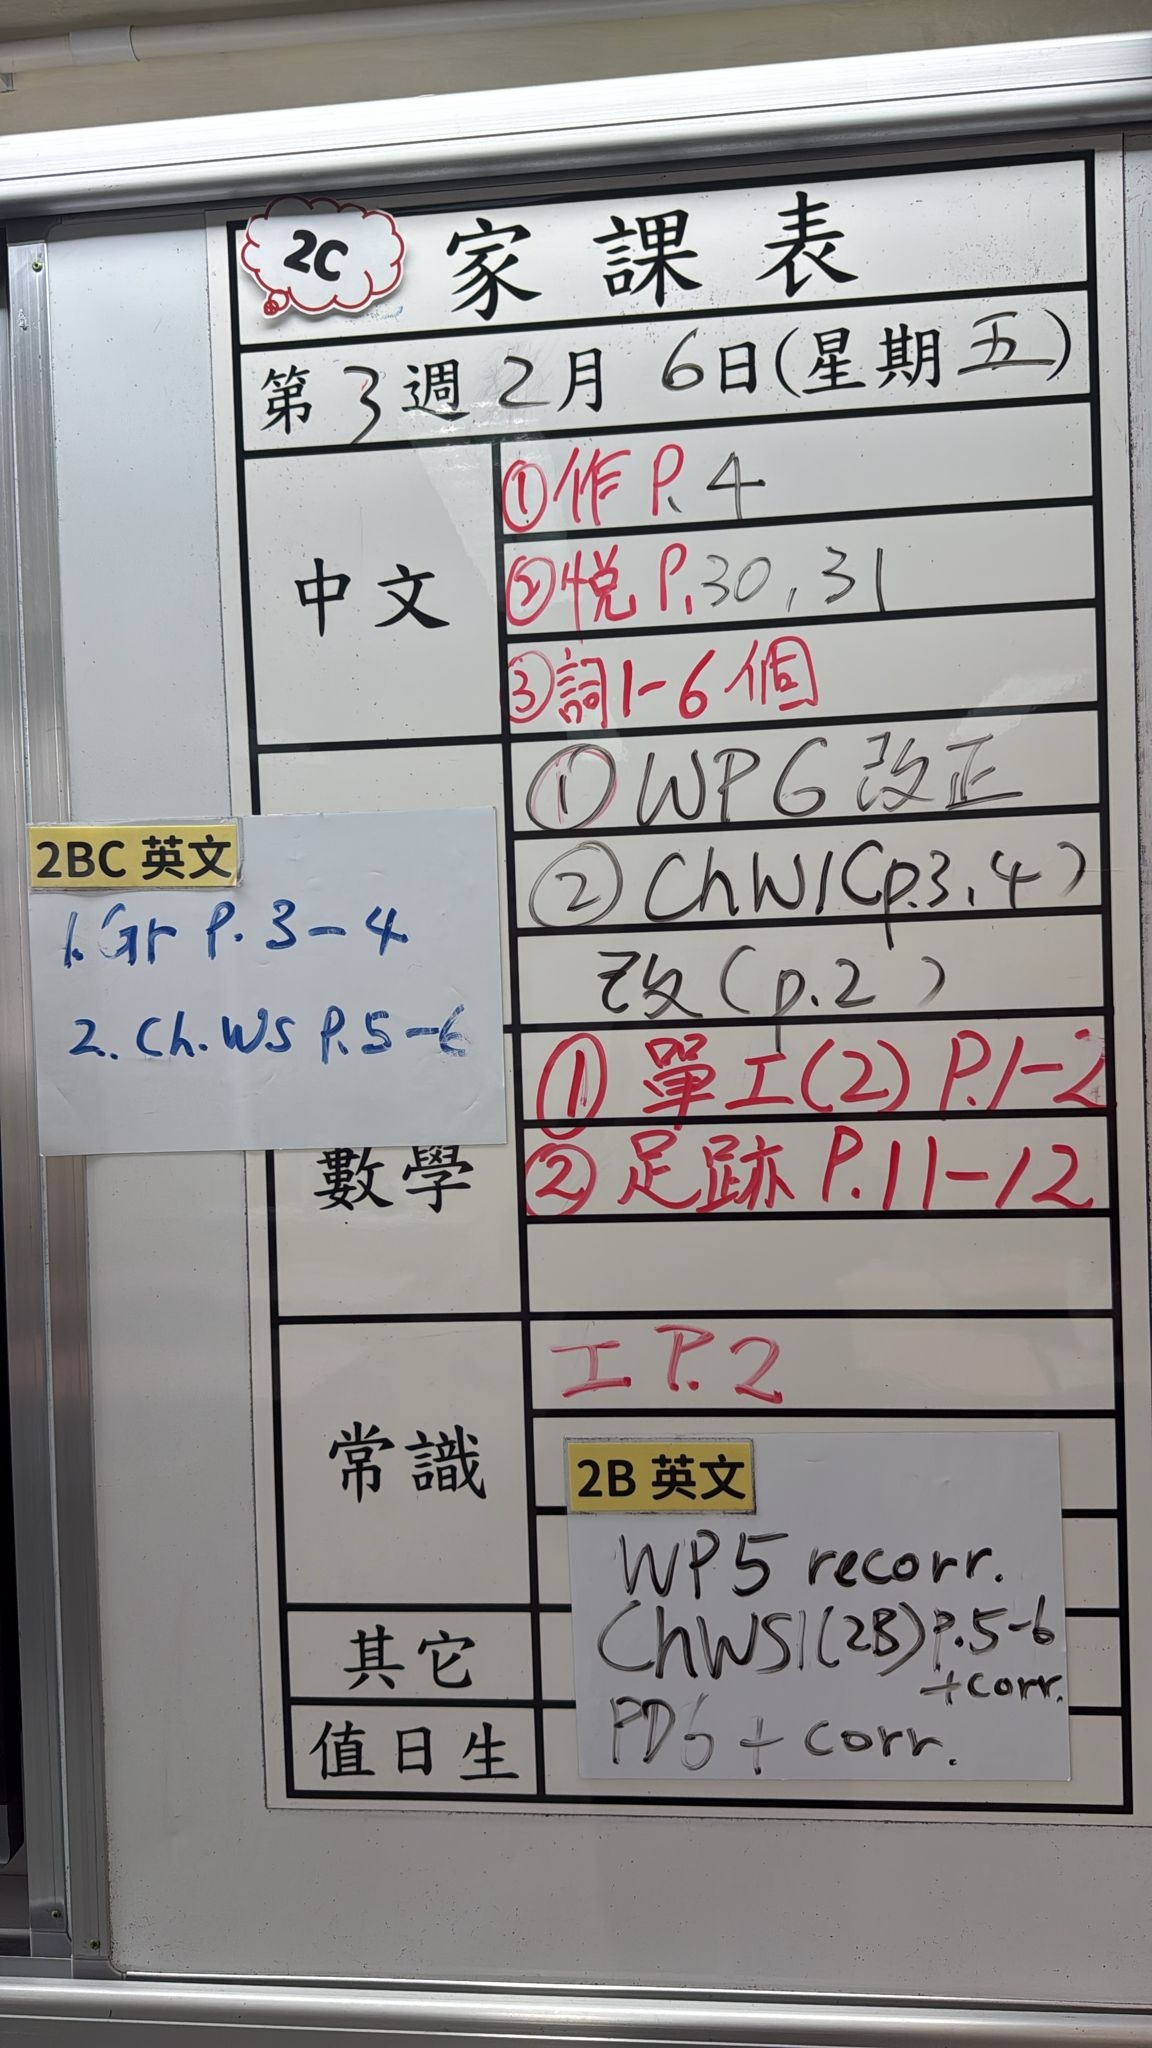 2C
家課表
第 3 週 2 月 6 日(星期五)
中文
①作 P.4
②悦 P.30, 31
③詞1-6個
①WP6 改正
②ChW1(p.3, 4)
改(p.2)
2BC 英文
1. Gr P.3-4
2. Ch.WS P.5-6
數學
①單工(2) P.1-2
②足跡 P.11-12
常識
工 P.2
2B 英文
WP5 recorr.
ChWS1(2B) P.5-6
+corr.
PD6 + corr.
其它
值日生